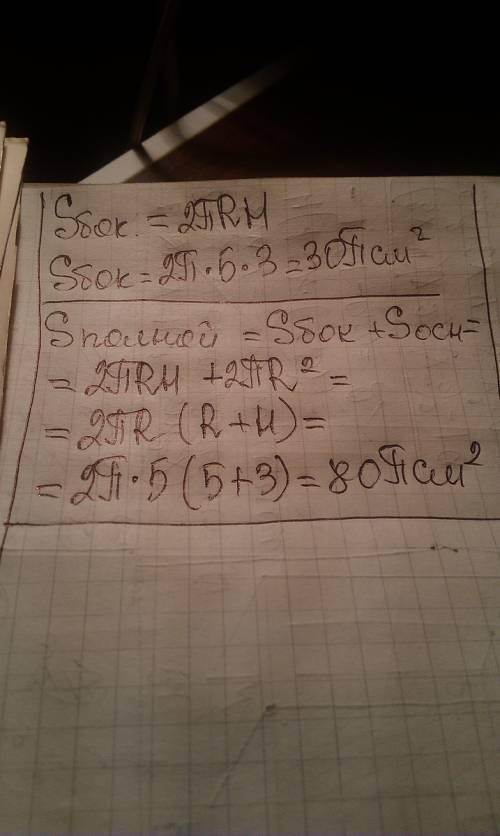 Sбок. = 2πRH
Sбок = 2π·5·3 = 30π см²
Sполной = Sбок + Sосн =
= 2πRH + 2πR² =
= 2πR (R+H) =
= 2π·5 (5+3) = 80π см²